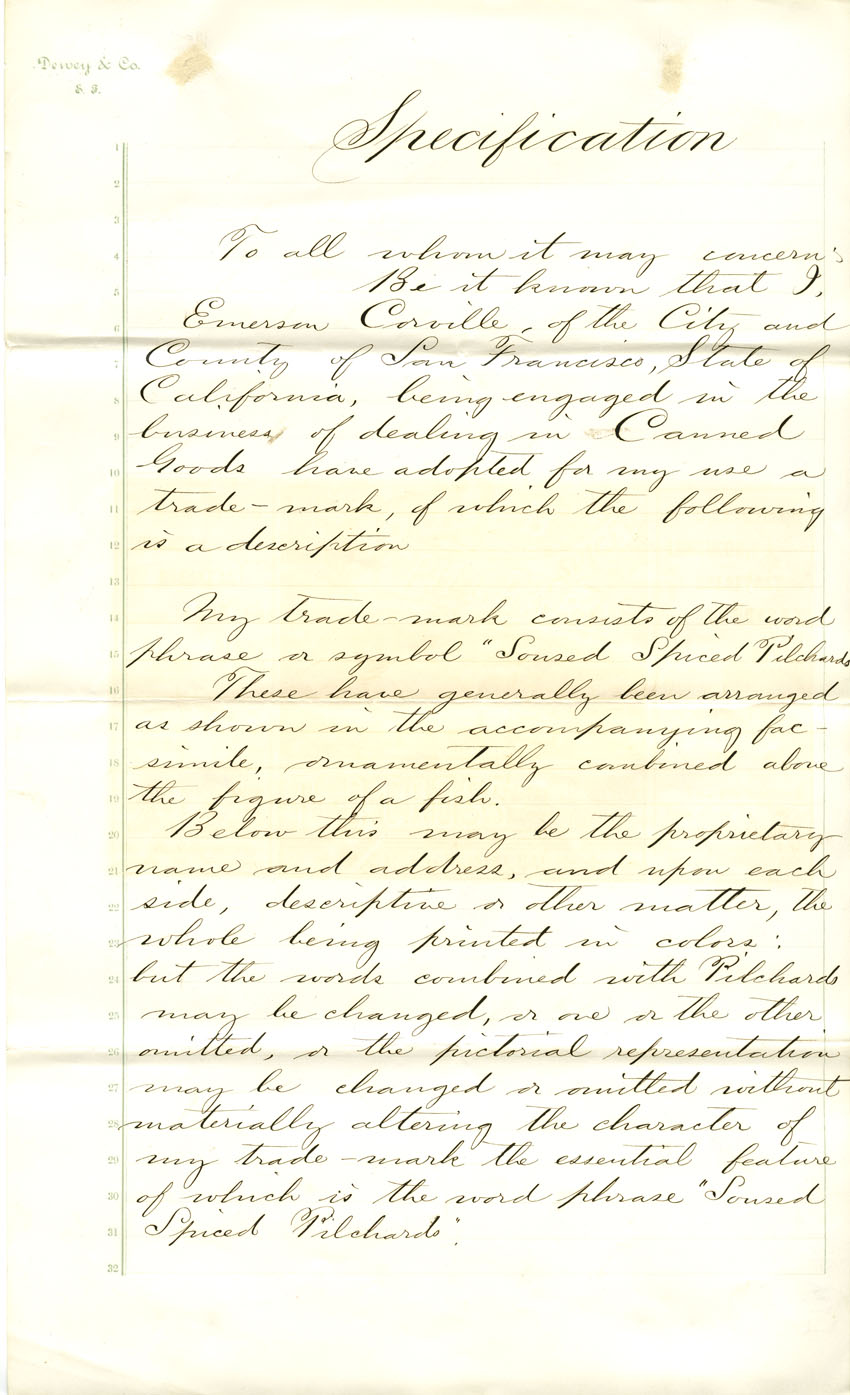 Dewey & Co.
S. F.
Specification
1
2
3
4 To all whom it may concern:
5 Be it known that I,
6 Emerson Corville, of the City and
7 County of San Francisco, State of
8 California, being engaged in the
9 business of dealing in Canned
10 Goods have adopted for my use a
11 trade-mark, of which the following
12 is a description
13
14 My trade-mark consists of the word
15 phrase or symbol "Soused Spiced Pilchards
16 These have generally been arranged
17 as shown in the accompanying fac-
18 simile, ornamentally combined above
19 the figure of a fish.
20 Below this may be the proprietary
21 name and address, and upon each
22 side, descriptive or other matter, the
23 whole being printed in colors:
24 but the words combined with Pilchards
25 may be changed, or one or the other
26 omitted, or the pictorial representation
27 may be changed or omitted without
28 materially altering the character of
29 my trade-mark the essential feature
30 of which is the word phrase "Soused
31 Spiced Pilchards".
32